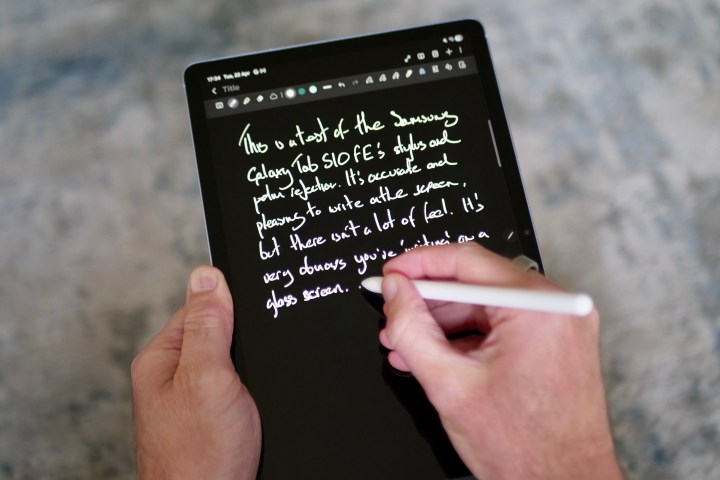 17:34 Tue, 22 Apr
Title
This is a test of the Samsung
Galaxy Tab S10 FE's stylus and
palm rejection. It's accurate and
pleasing to write on the screen,
but there isn't a lot of feel. It's
very obvious you're 'writing' on a
glass screen.